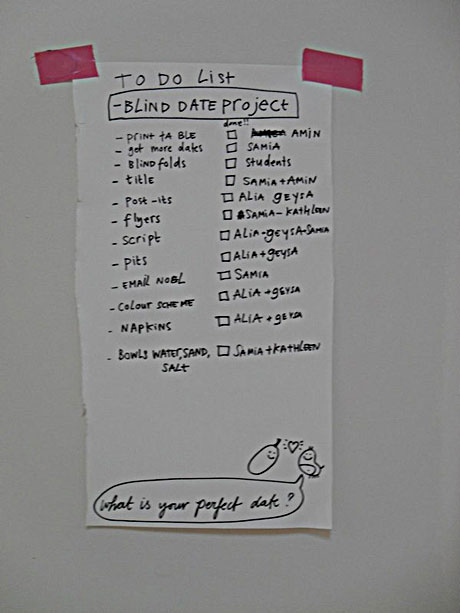 TO DO List
-BLIND DATE project
done!!
- PRINT TABLE AMIN
- get more dates SAMIA
- BLINDfolds Students
- title SAMIA+AMIN
- Post-its ALIA geysa
- flyers SAMIA-KATHLEEN
- SCRIPT ALIA-geysa-SAMIA
- pits ALIA+geysa
- EMAIL NOBL SAMIA
- COLOUR SCHEME ALIA+geysa
- NAPKINS ALIA + geysa
- BOWLS WATER,SAND, SAMIA+KATHLEEN
SALT
what is your perfect date?